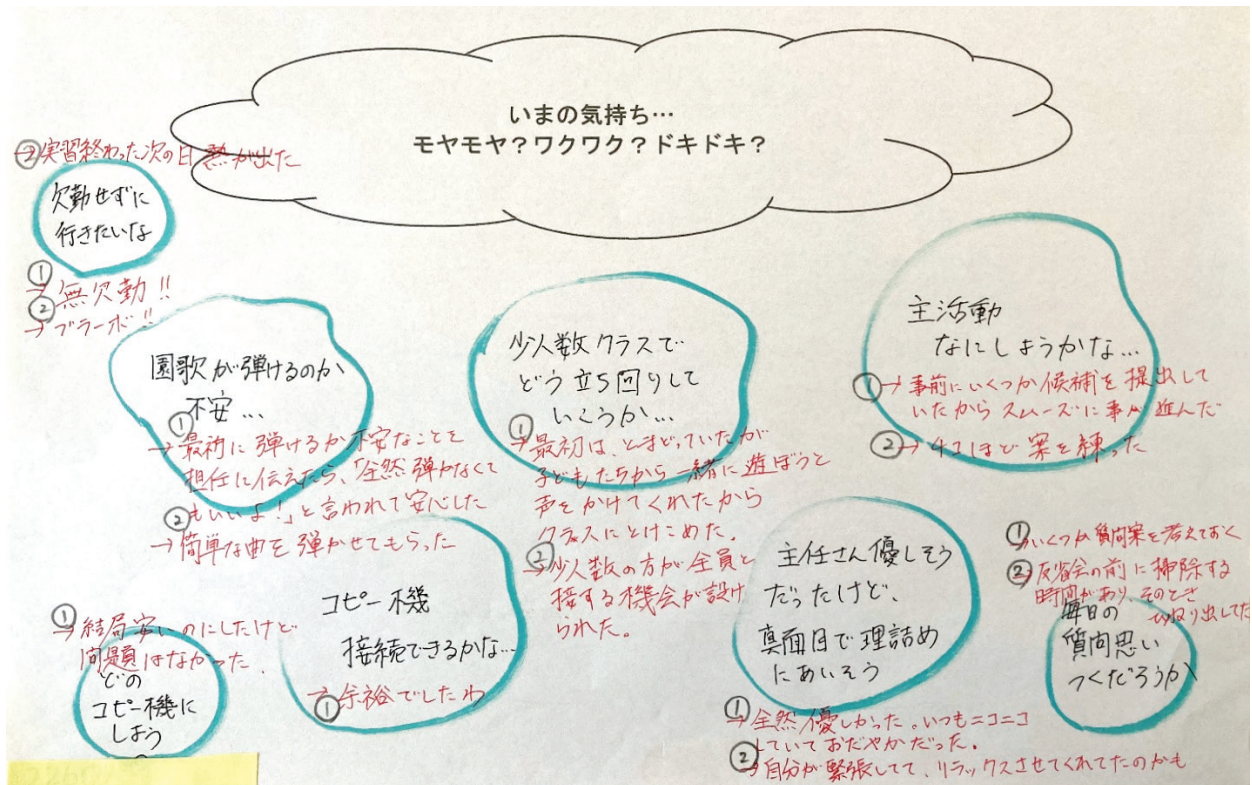 いまの気持ち…
モヤモヤ？ワクワク？ドキドキ？
②→実習終わった次の日 熱が出た
欠勤せずに
行きたいな
①→無欠勤!!
②→ブラーボ!!
園歌が弾けるのか
不安…
①→最初に弾けるか不安なことを
担任に伝えたら、「全然弾かなくて
もいいよ!」と言われて安心した
②→簡単な曲を弾かせてもらった
少人数クラスで
どう立ち回りして
いくうか…
①→最初は、とまどっていたが
子どもたちから一緒に遊ぼうと
声をかけてくれたから
クラスにとけこめた。
②→少人数の方が全員と
接する機会が設け
られた。
主活動
なにしようかな…
①→事前にいくつか候補を提出して
いたからスムーズに事が進んだ
②→4コほど案を練った
①→結局安いのにしたけど
問題はなかった.
どの
コピー機に
しよう
コピー機
接続できるかな…
①→余裕でしたわ
主任さん優しそう
だったけど、
真面目で理詰め
にあいそう
①→全然優しかった。いつもニコニコ
していておだやかだった。
②→自分が緊張してて、リラックスさせてくれてたのかも
①→いくつか質問案を考えておく
②→反省会の前に掃除する
時間があり、そのとき
ひねり出してた
毎日の
質問思い
つくだろうか